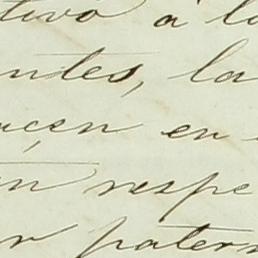 tivo á lo
ntes, la
ucen en
en respe
or patern